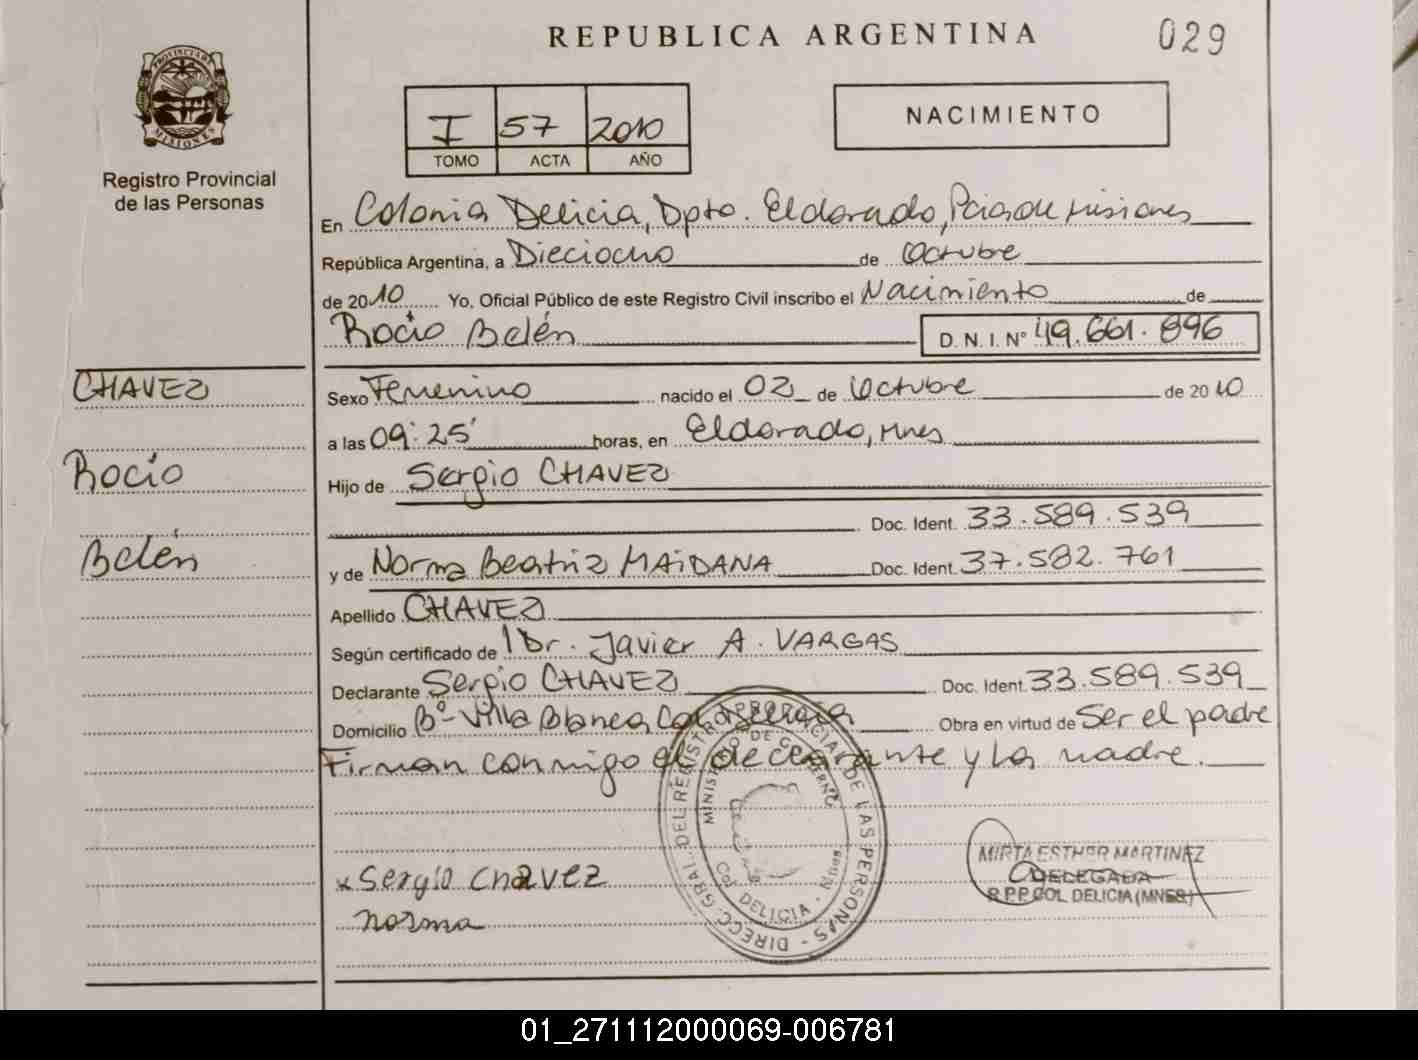 REPUBLICA ARGENTINA
029
PROVINCIA DE MISIONES
Registro Provincial
de las Personas
I 57 2010
TOMO ACTA AÑO
NACIMIENTO
En Colonia Delicia, Dpto. Eldorado, Pcia de Misiones
República Argentina, a Dieciocho de Octubre
de 2010 Yo, Oficial Público de este Registro Civil inscribo el Nacimiento de
Rocío Belén D. N. I. N° 49.661.896
CHAVEZ
Rocío
Belén
Sexo Femenino nacido el 02 de Octubre de 2010
a las 09:25' horas, en Eldorado, Mnes
Hijo de Sergio CHAVEZ
Doc. Ident. 33.589.539
y de Norma Beatriz MAIDANA Doc. Ident. 37.582.761
Apellido CHAVEZ
Según certificado de Dr. Javier A. VARGAS
Declarante Sergio CHAVEZ Doc. Ident. 33.589.539
Domicilio B°- Villa Blanca, Col Delicia Obra en virtud de Ser el padre
Firman conmigo el declarante y la madre.
DIRECC. GRAL. DEL REGISTRO PROVINCIAL DE LAS PERSONAS
MINISTERIO DE GOBIERNO
Col. DELICIA - Mnes
x Sergio chavez
norma
MIRTA ESTHER MARTINEZ
DELEGADA
R.P.P. COL. DELICIA (MNES)
01_271112000069-006781